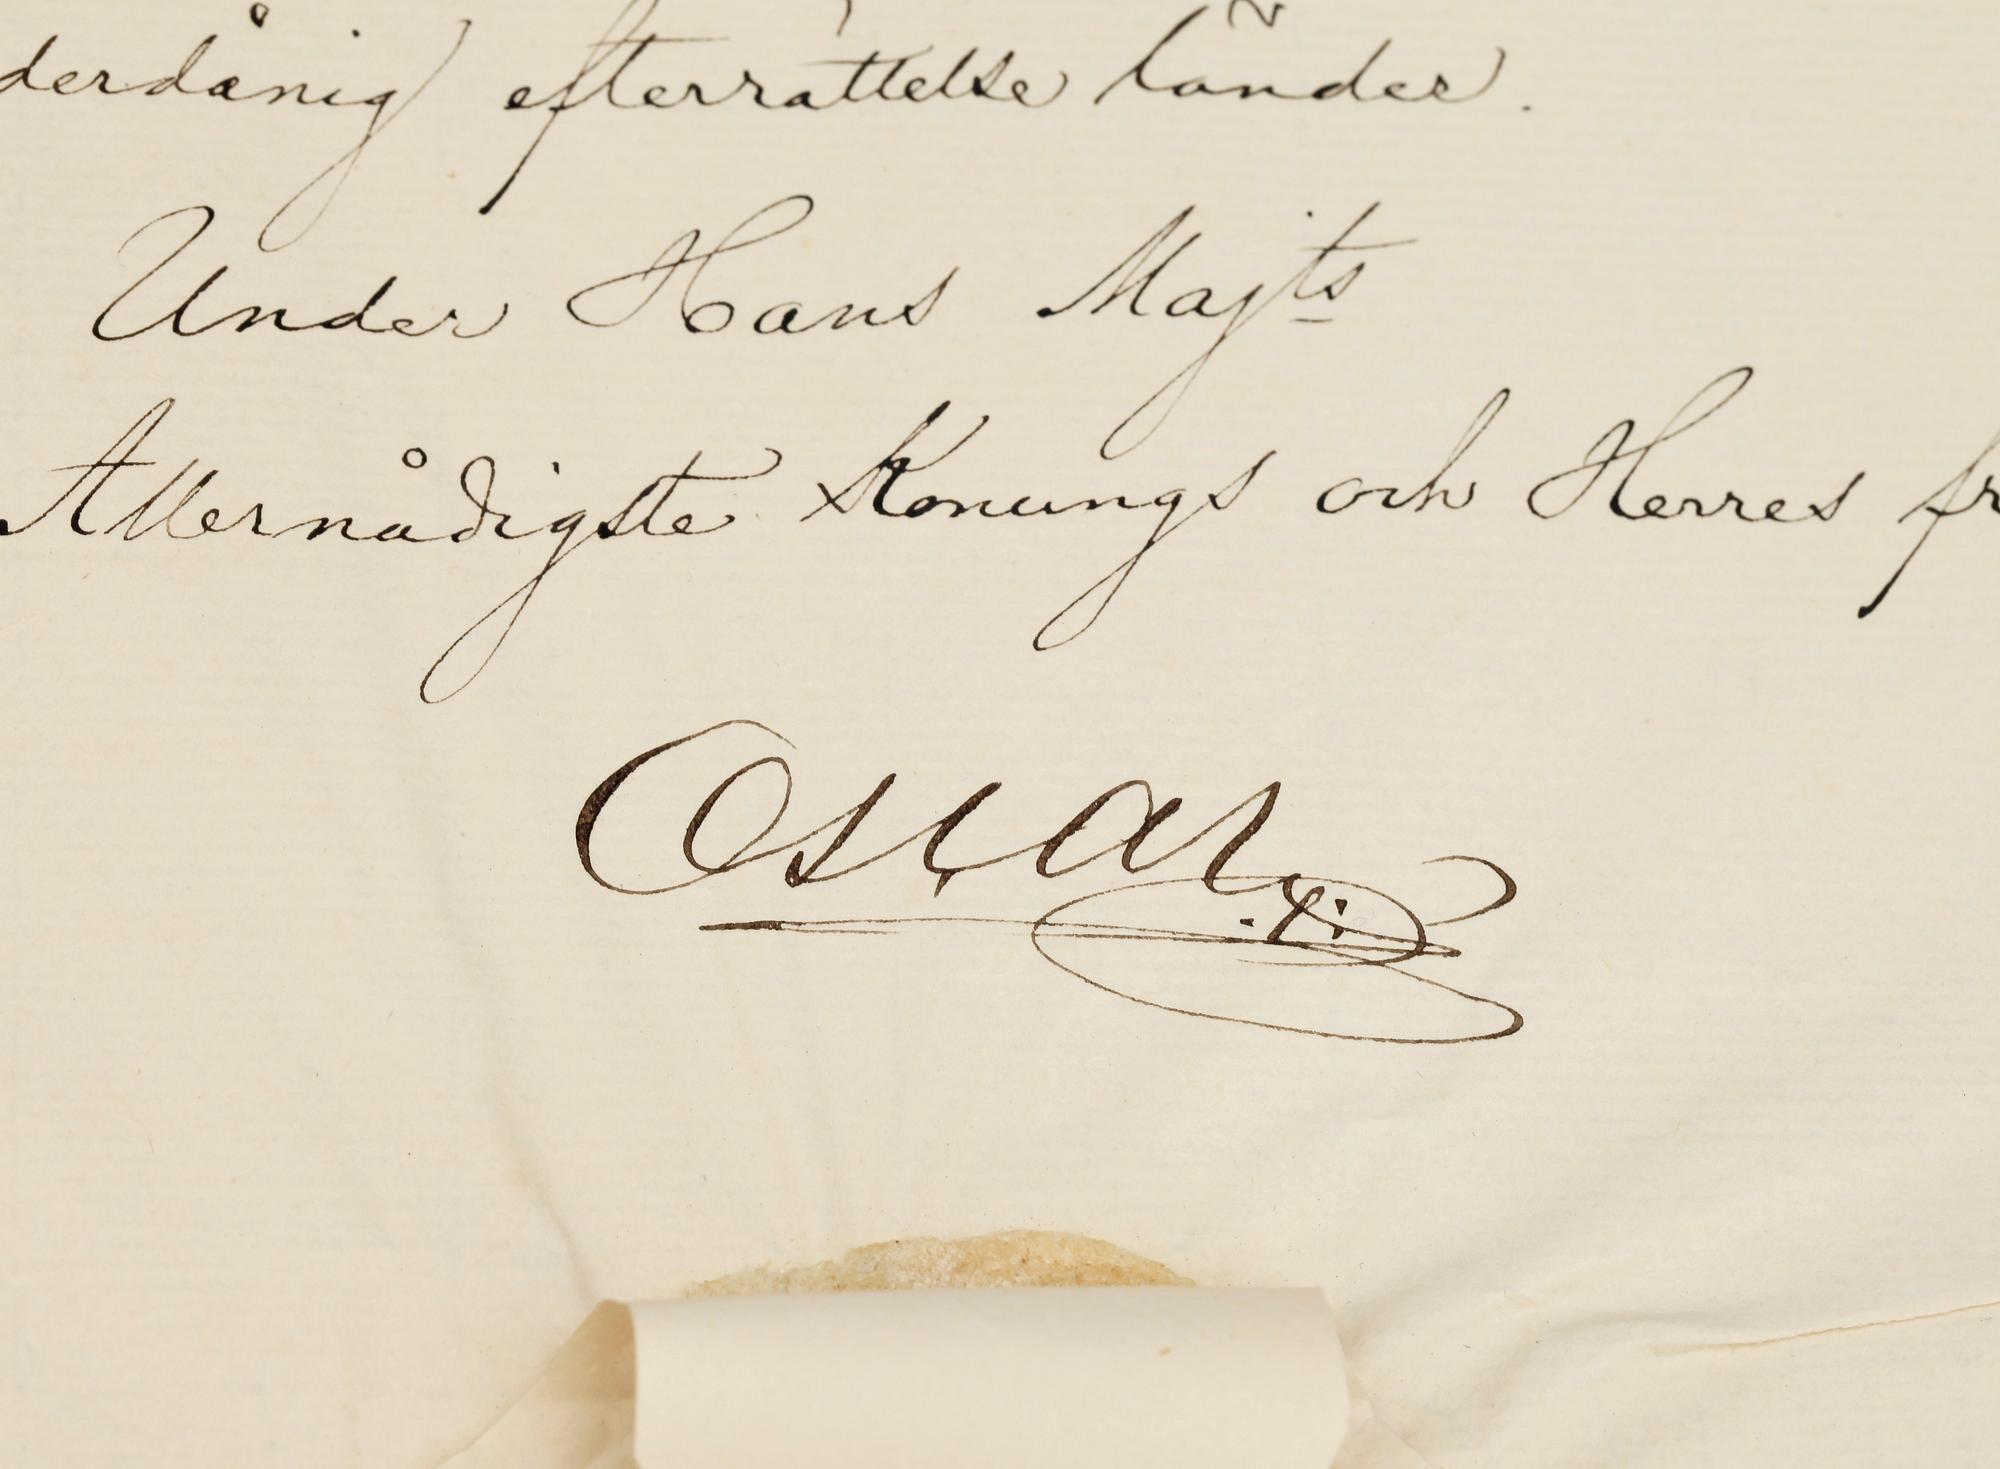 derdånig efterrättelse länder.
Under Hans Majts
Allernådigste Konungs och Herres fr
Oscar